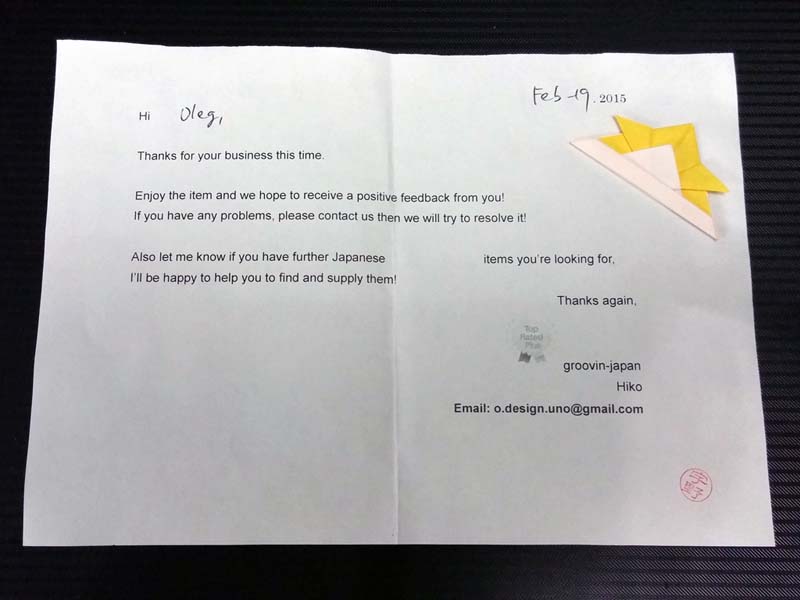 Feb 19. 2015
Hi Oleg,
Thanks for your business this time.
Enjoy the item and we hope to receive a positive feedback from you!
If you have any problems, please contact us then we will try to resolve it!
Also let me know if you have further Japanese items you're looking for,
I'll be happy to help you to find and supply them!
Thanks again,
Top
Rated
Plus
groovin-japan
Hiko
Email: o.design.uno@gmail.com